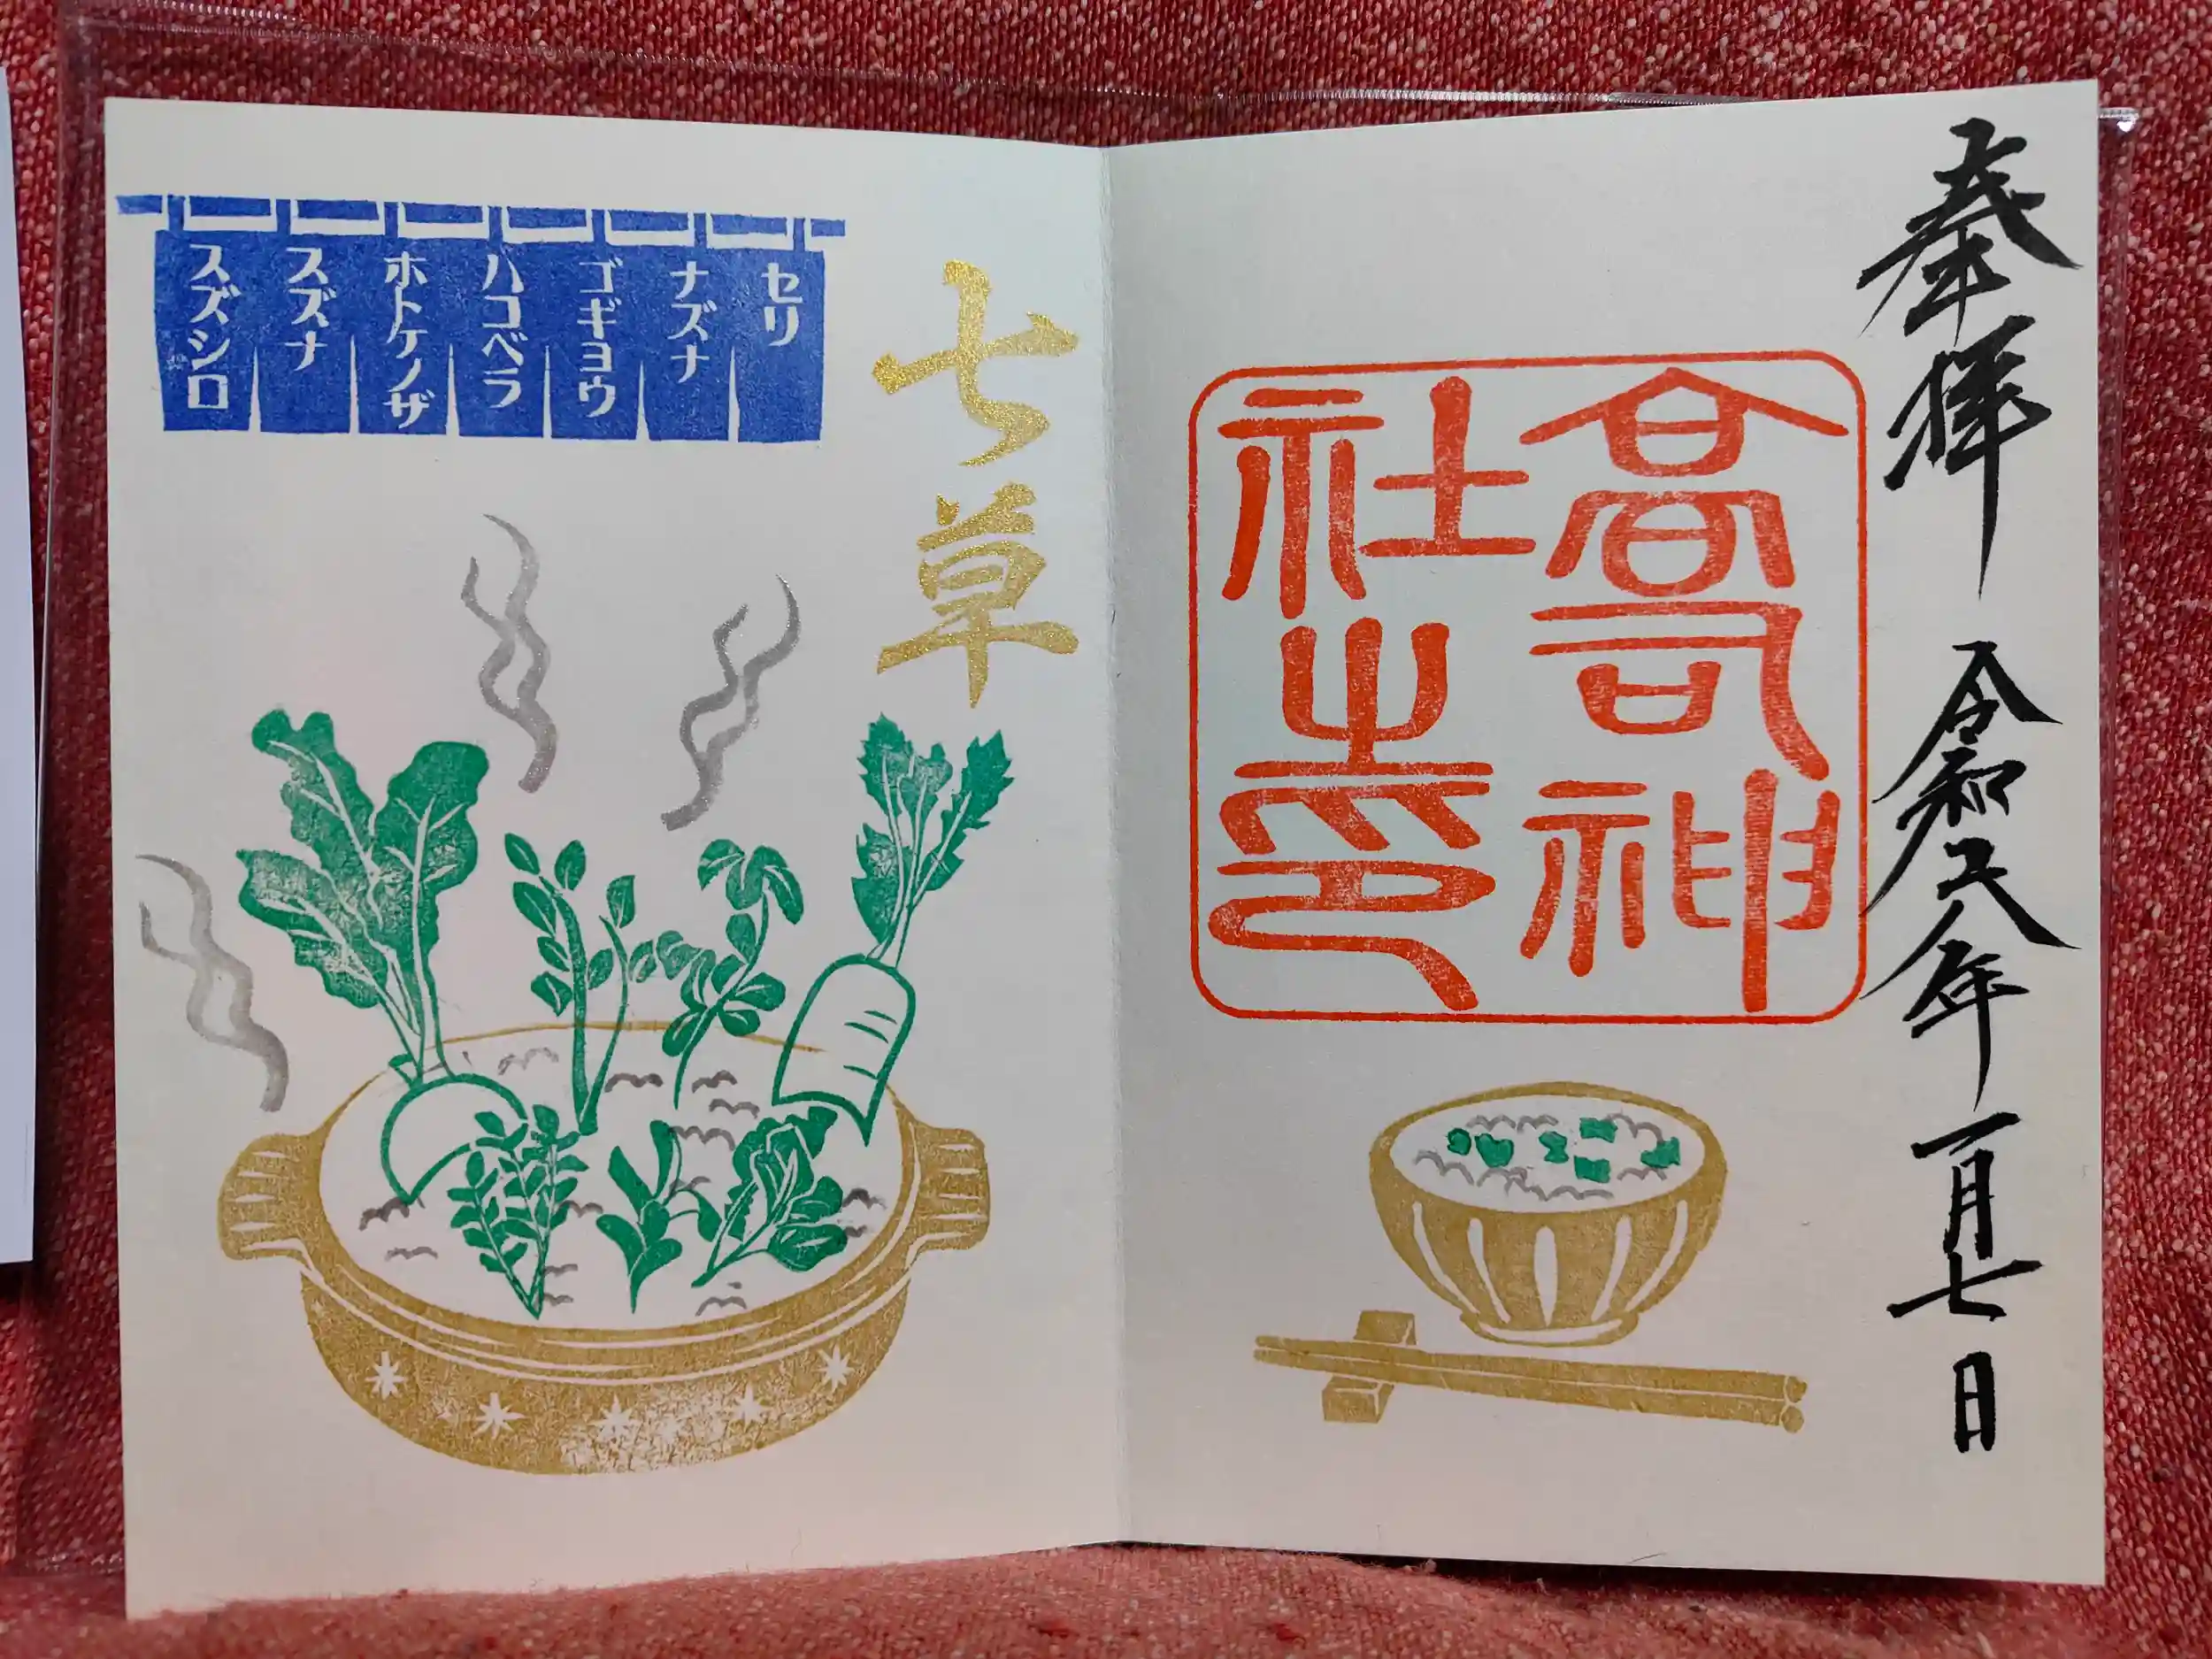 奉拝
令和六年一月七日
高司神
社之印
七草
セリ
ナズナ
ゴギョウ
ハコベラ
ホトケノザ
スズナ
スズシロ